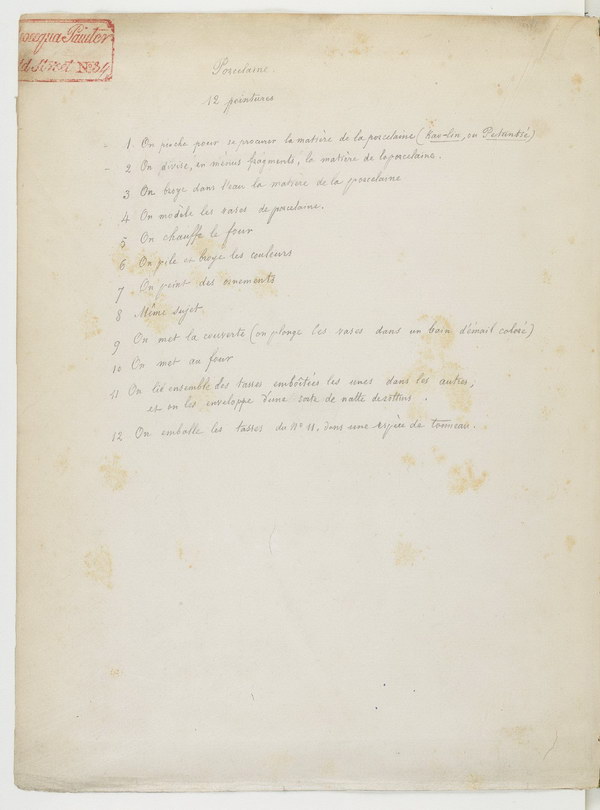 Painter
N° 34
Porcelaine.
12 peintures
1 On pioche pour se procurer la matière de la porcelaine (Kao-lin, ou Petuntsé)
2 On divise, en menus fragments, la matière de la porcelaine.
3 On broye dans l'eau la matière de la porcelaine
4 On modèle les vases de porcelaine.
5 On chauffe le four
6 On pile et broye les couleurs
7 On peint des ornements
8 Même sujet.
9 On met la couverte (on plonge les vases dans un bain d'émail coloré)
10 On met au four
11 On lie ensemble des tasses emboîtées les unes dans les autres,
et on les enveloppe d'une sorte de natte dessus.
12 On emballe les tasses du N° 11. dans une espèce de tonneau.